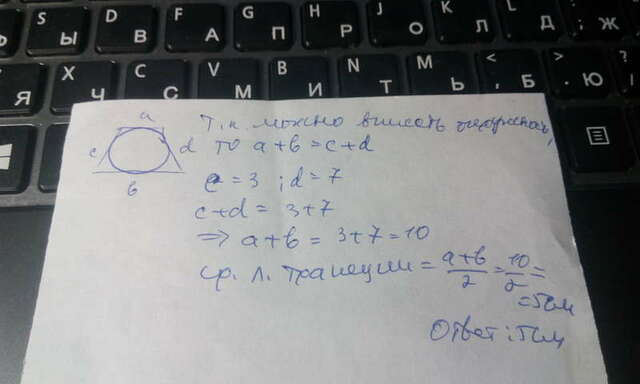 S D F G H J K L
Ы В А П Р О Л Д Ж
X C V B N M < >
Я Ч С М И Т Ь , Б . Ю
a
c d
в
Т.к можно вписать окружность,
то a+в=c+d
c=3 ; d=7
c+d= 3+7
⇒ a+в = 3+7=10
ср. л. трапеции = a+в/2 = 10/2 =
=5см
Ответ: 5см